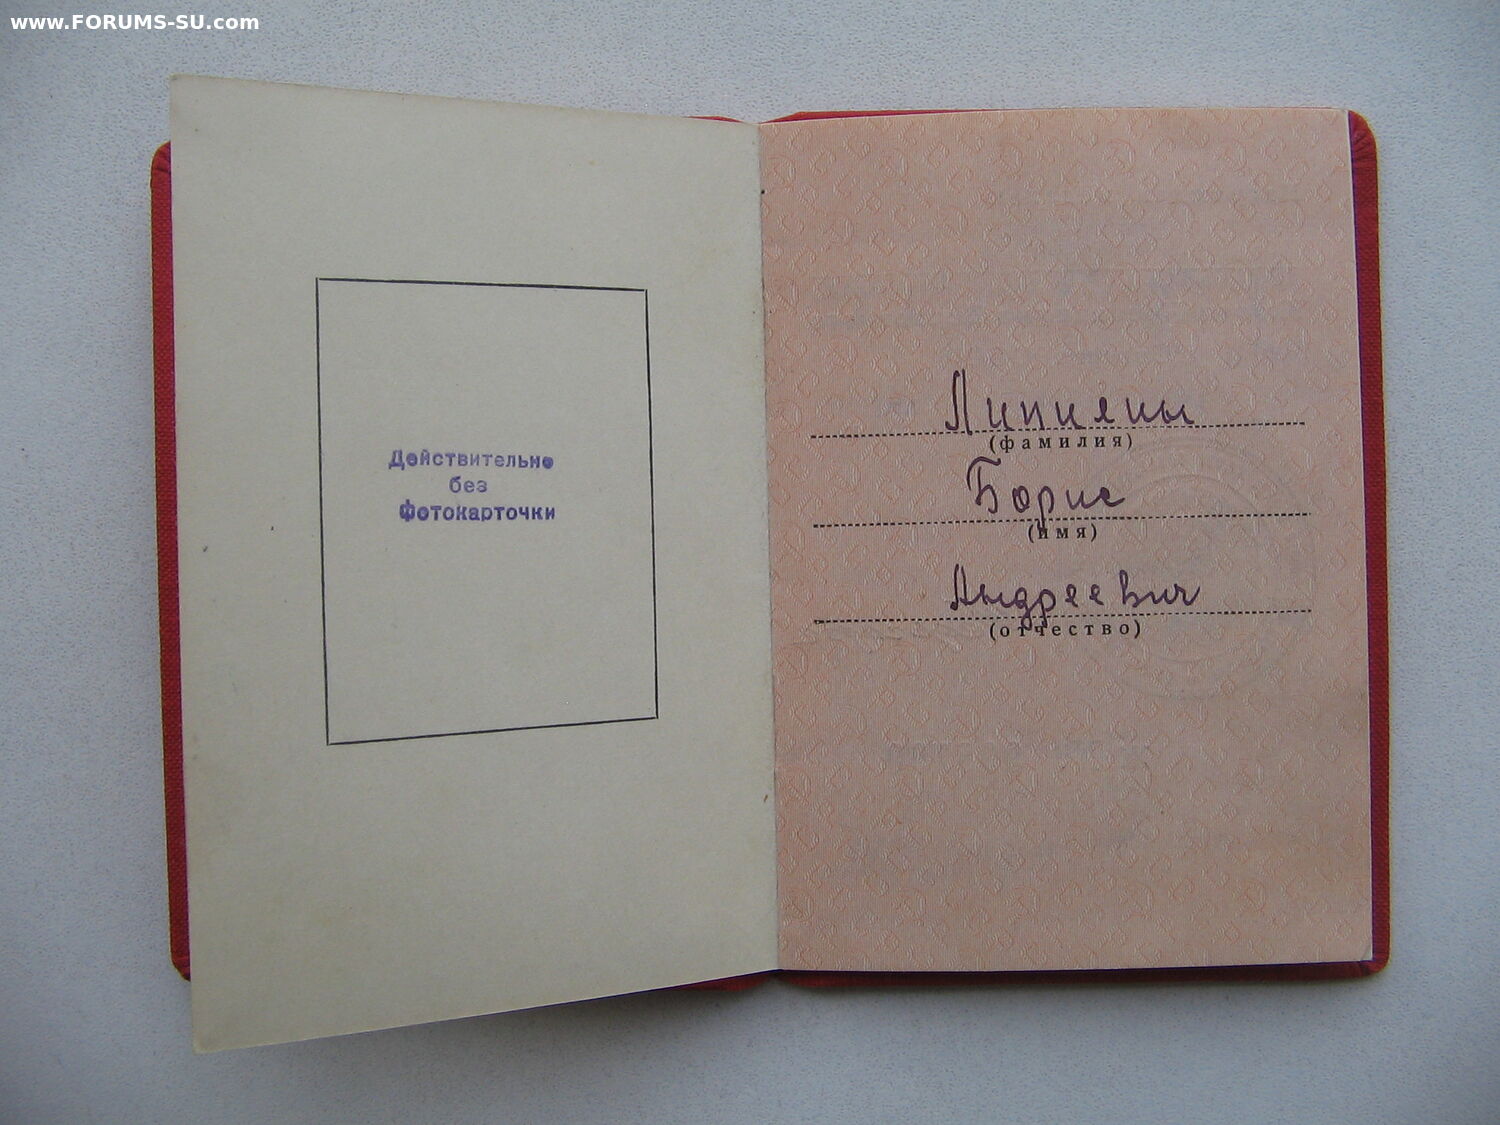 www.FORUMS-SU.com
Действительно
без
Фотокарточки
(фамилия)
Борис
(имя)
Андреевич
(отчество)